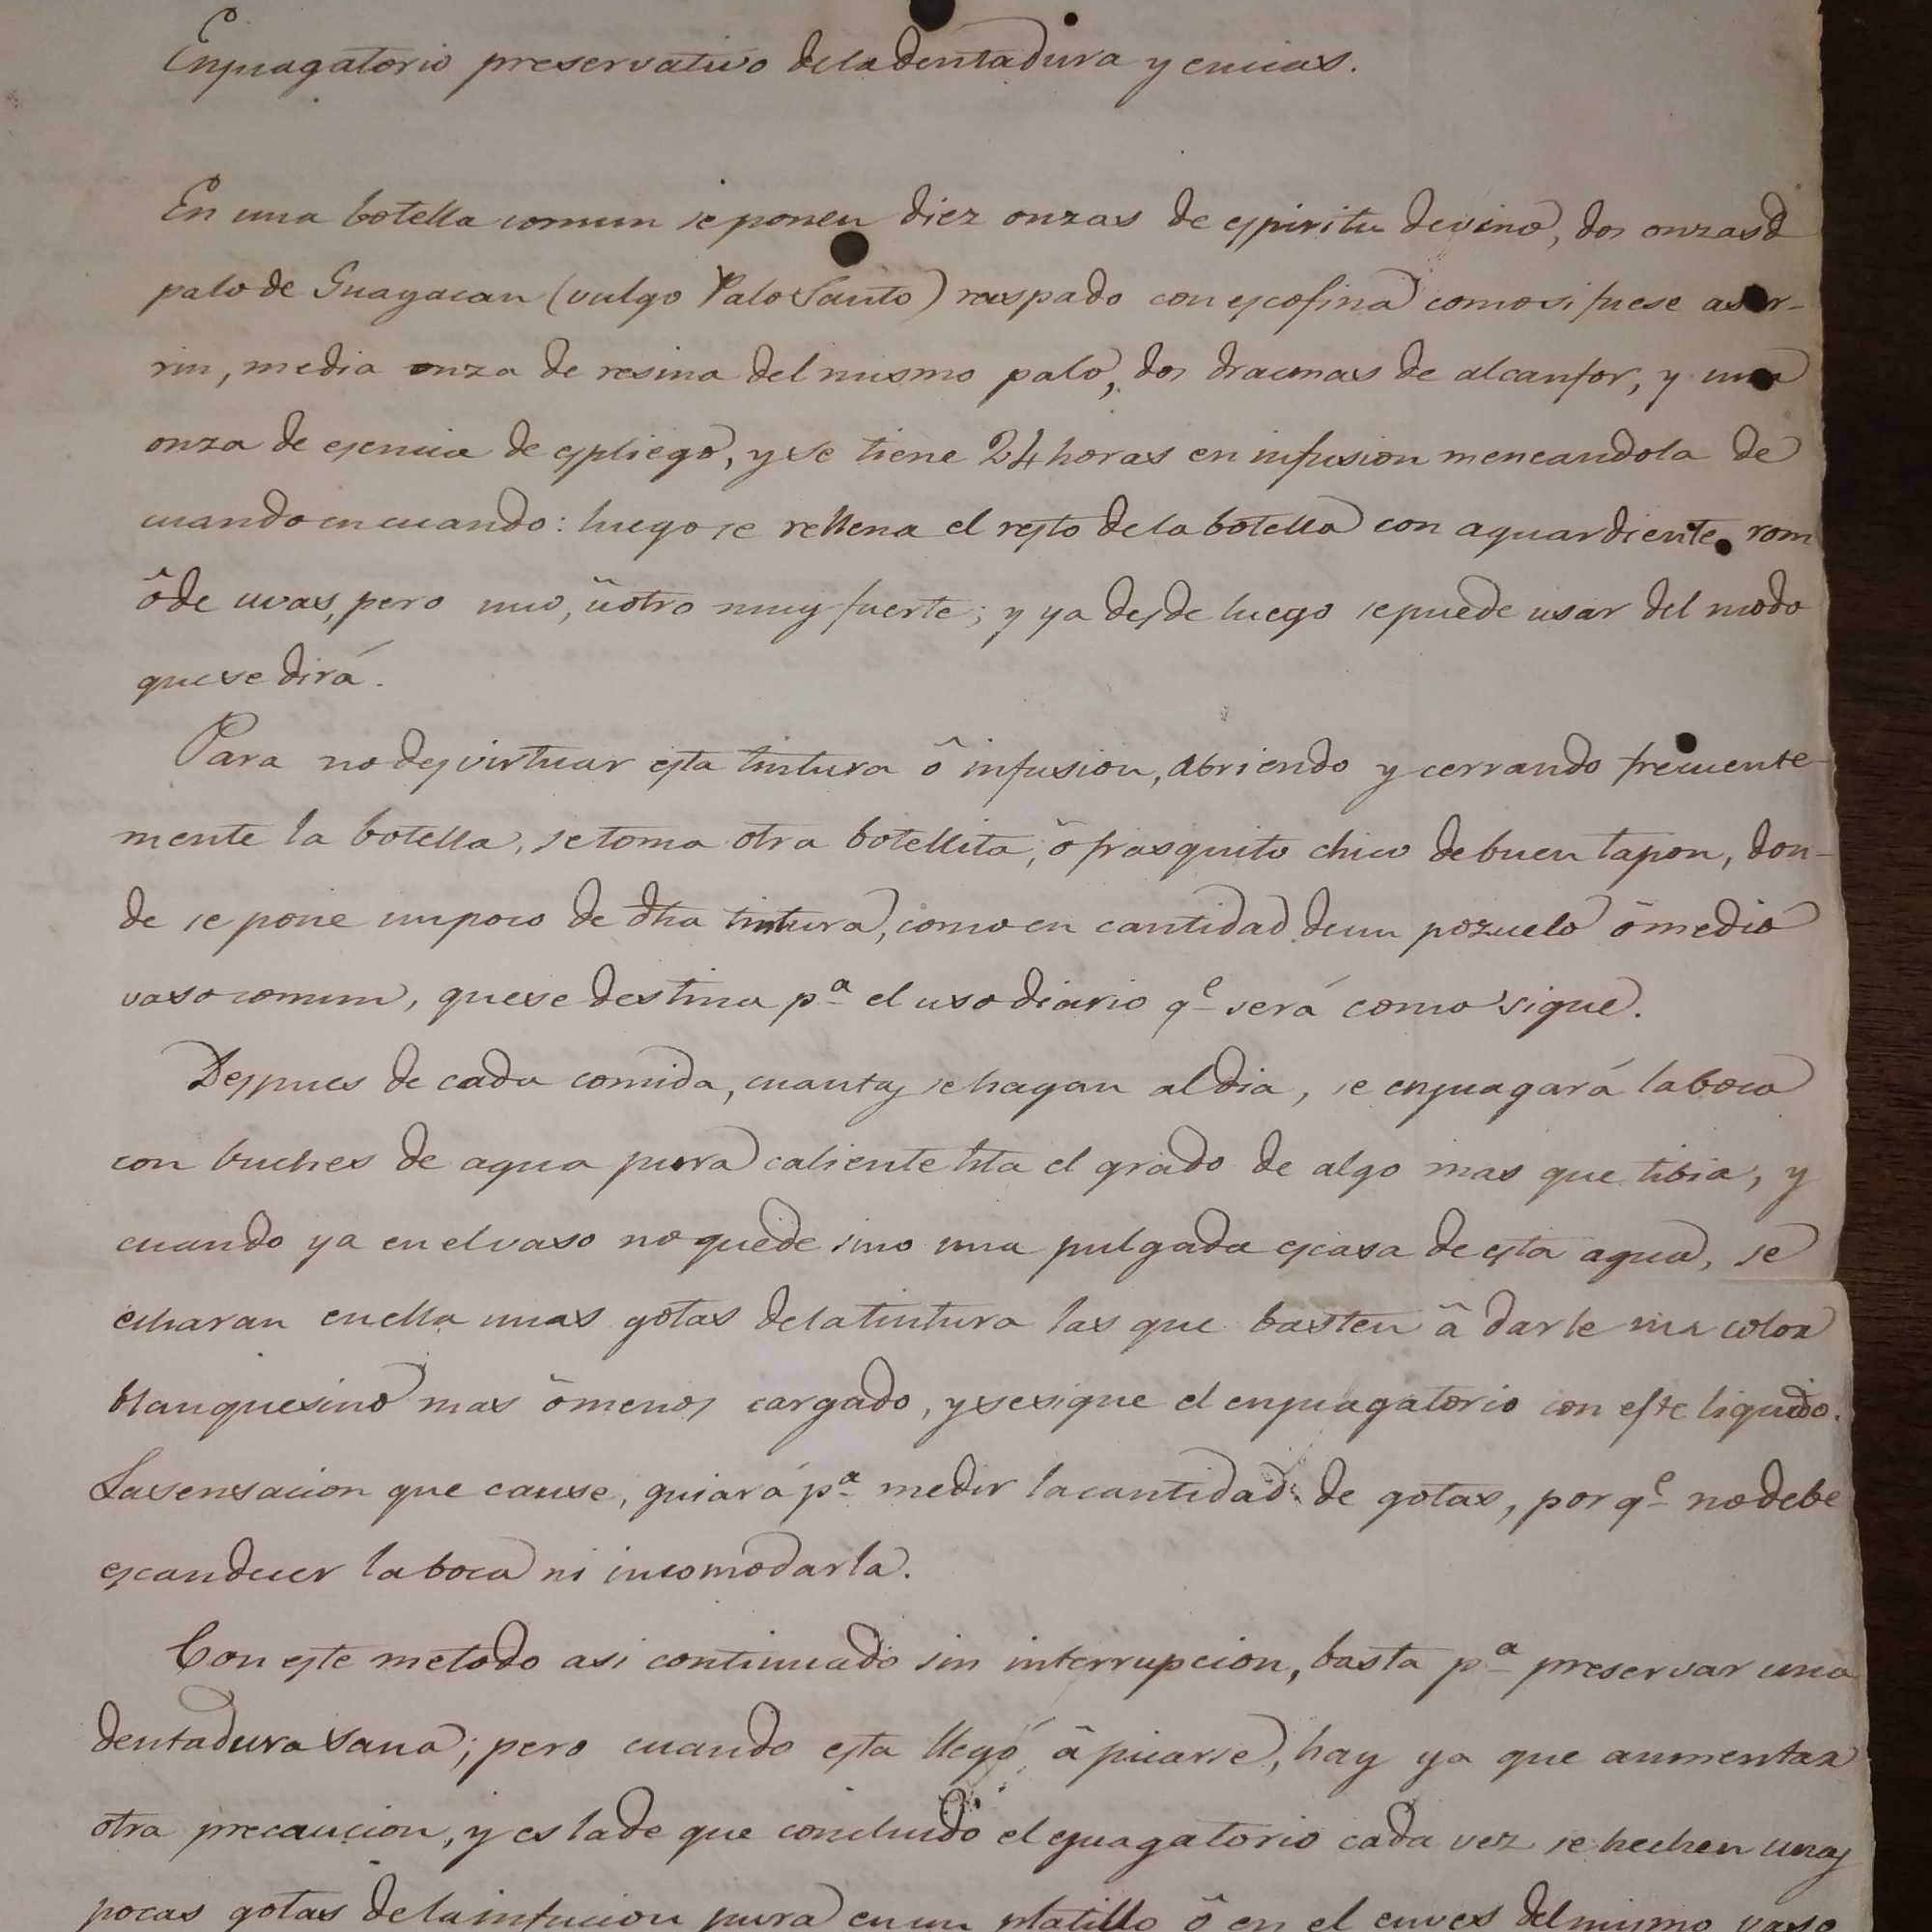 Enjuagatorio preservativo dela dentadura y encias.
En una botella comun se ponen diez onzas de espiritu devino, dos onzas d
palo de Guayacan (vulgo Palo Santo) raspado con escofina como si fuese aser-
rin, media onza de resina del mismo palo, dos dracmas de alcanfor, y una
onza de esencia de espliego, y se tiene 24 horas en infusion meneandola de
cuando en cuando: luego se rellena el resto de la botella con aguardiente rom
ô de uvas, pero uno, ù otro muy fuerte; y ya desde luego se puede usar del modo
que se dirá.
Para no desvirtuar esta tintura ô infusion, abriendo y cerrando frecuente-
mente la botella, se toma otra botellita, ô frasquito chico de buen tapon, don-
de se pone un poco de dha tintura, como en cantidad de un pozuelo ô medio
vaso comun, que se destina pª el uso diario qᵉ será como sigue.
Despues de cada comida, cuantas se hagan al dia, se enjuagará la boca
con buches de agua pura caliente hta el grado de algo mas que tibia, y
cuando ya en el vaso no quede sino una pulgada escasa de esta agua, se
echaran en ella unas gotas dela tintura las que basten â darle un color
blanquesino mas ô menos cargado, y se sigue el enjuagatorio con este liquido.
La sensacion que cause, guiará pª medir la cantidad de gotas, por qᵉ no debe
escandecer la boca ni incomodarla.
Con este metodo asi continuado sin interrupcion, basta pª preservar una
dentadura sana; pero cuando esta llegó â picarse, hay ya que aumentar
otra precaucion, y es la de que concluido el eguagatorio cada vez se hechen unas
pocas gotas dela infucion pura en un platillo ô en el enves del mismo vaso